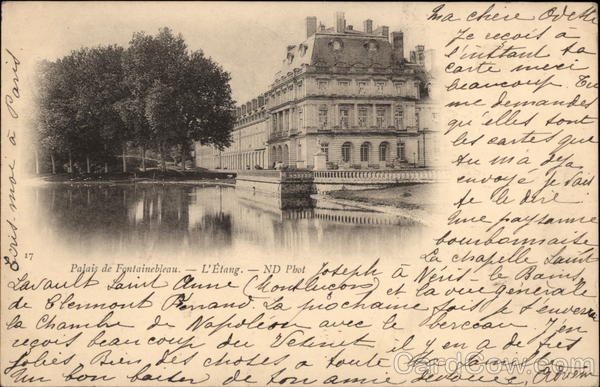 Ma chère Odette
Je reçois à
l'instant ta
carte merci
beaucoup. Tu
me demandes
qu'elles sont
les cartes que
tu m'a déja
envoyé je vais
te le dire.
Une paysanne
bourbonnaise
la chapelle Saint
Joseph à Néris les Bains,
Lavault Saint Anne (Montluçon) et la vue générale
de Clermont Ferrand. La prochaine fois je t'enverrai
la Chambre de Napoléon avec le berceau. J'en
reçois beaucoup du Vésinet il y en a de très
jolies. Bien des choses à toute la famille,
Un bon baiser de ton amie dévouée,
Ecris-moi à Paris
17
Palais de Fontainebleau. — L'Étang. — ND Phot
CardCow.com